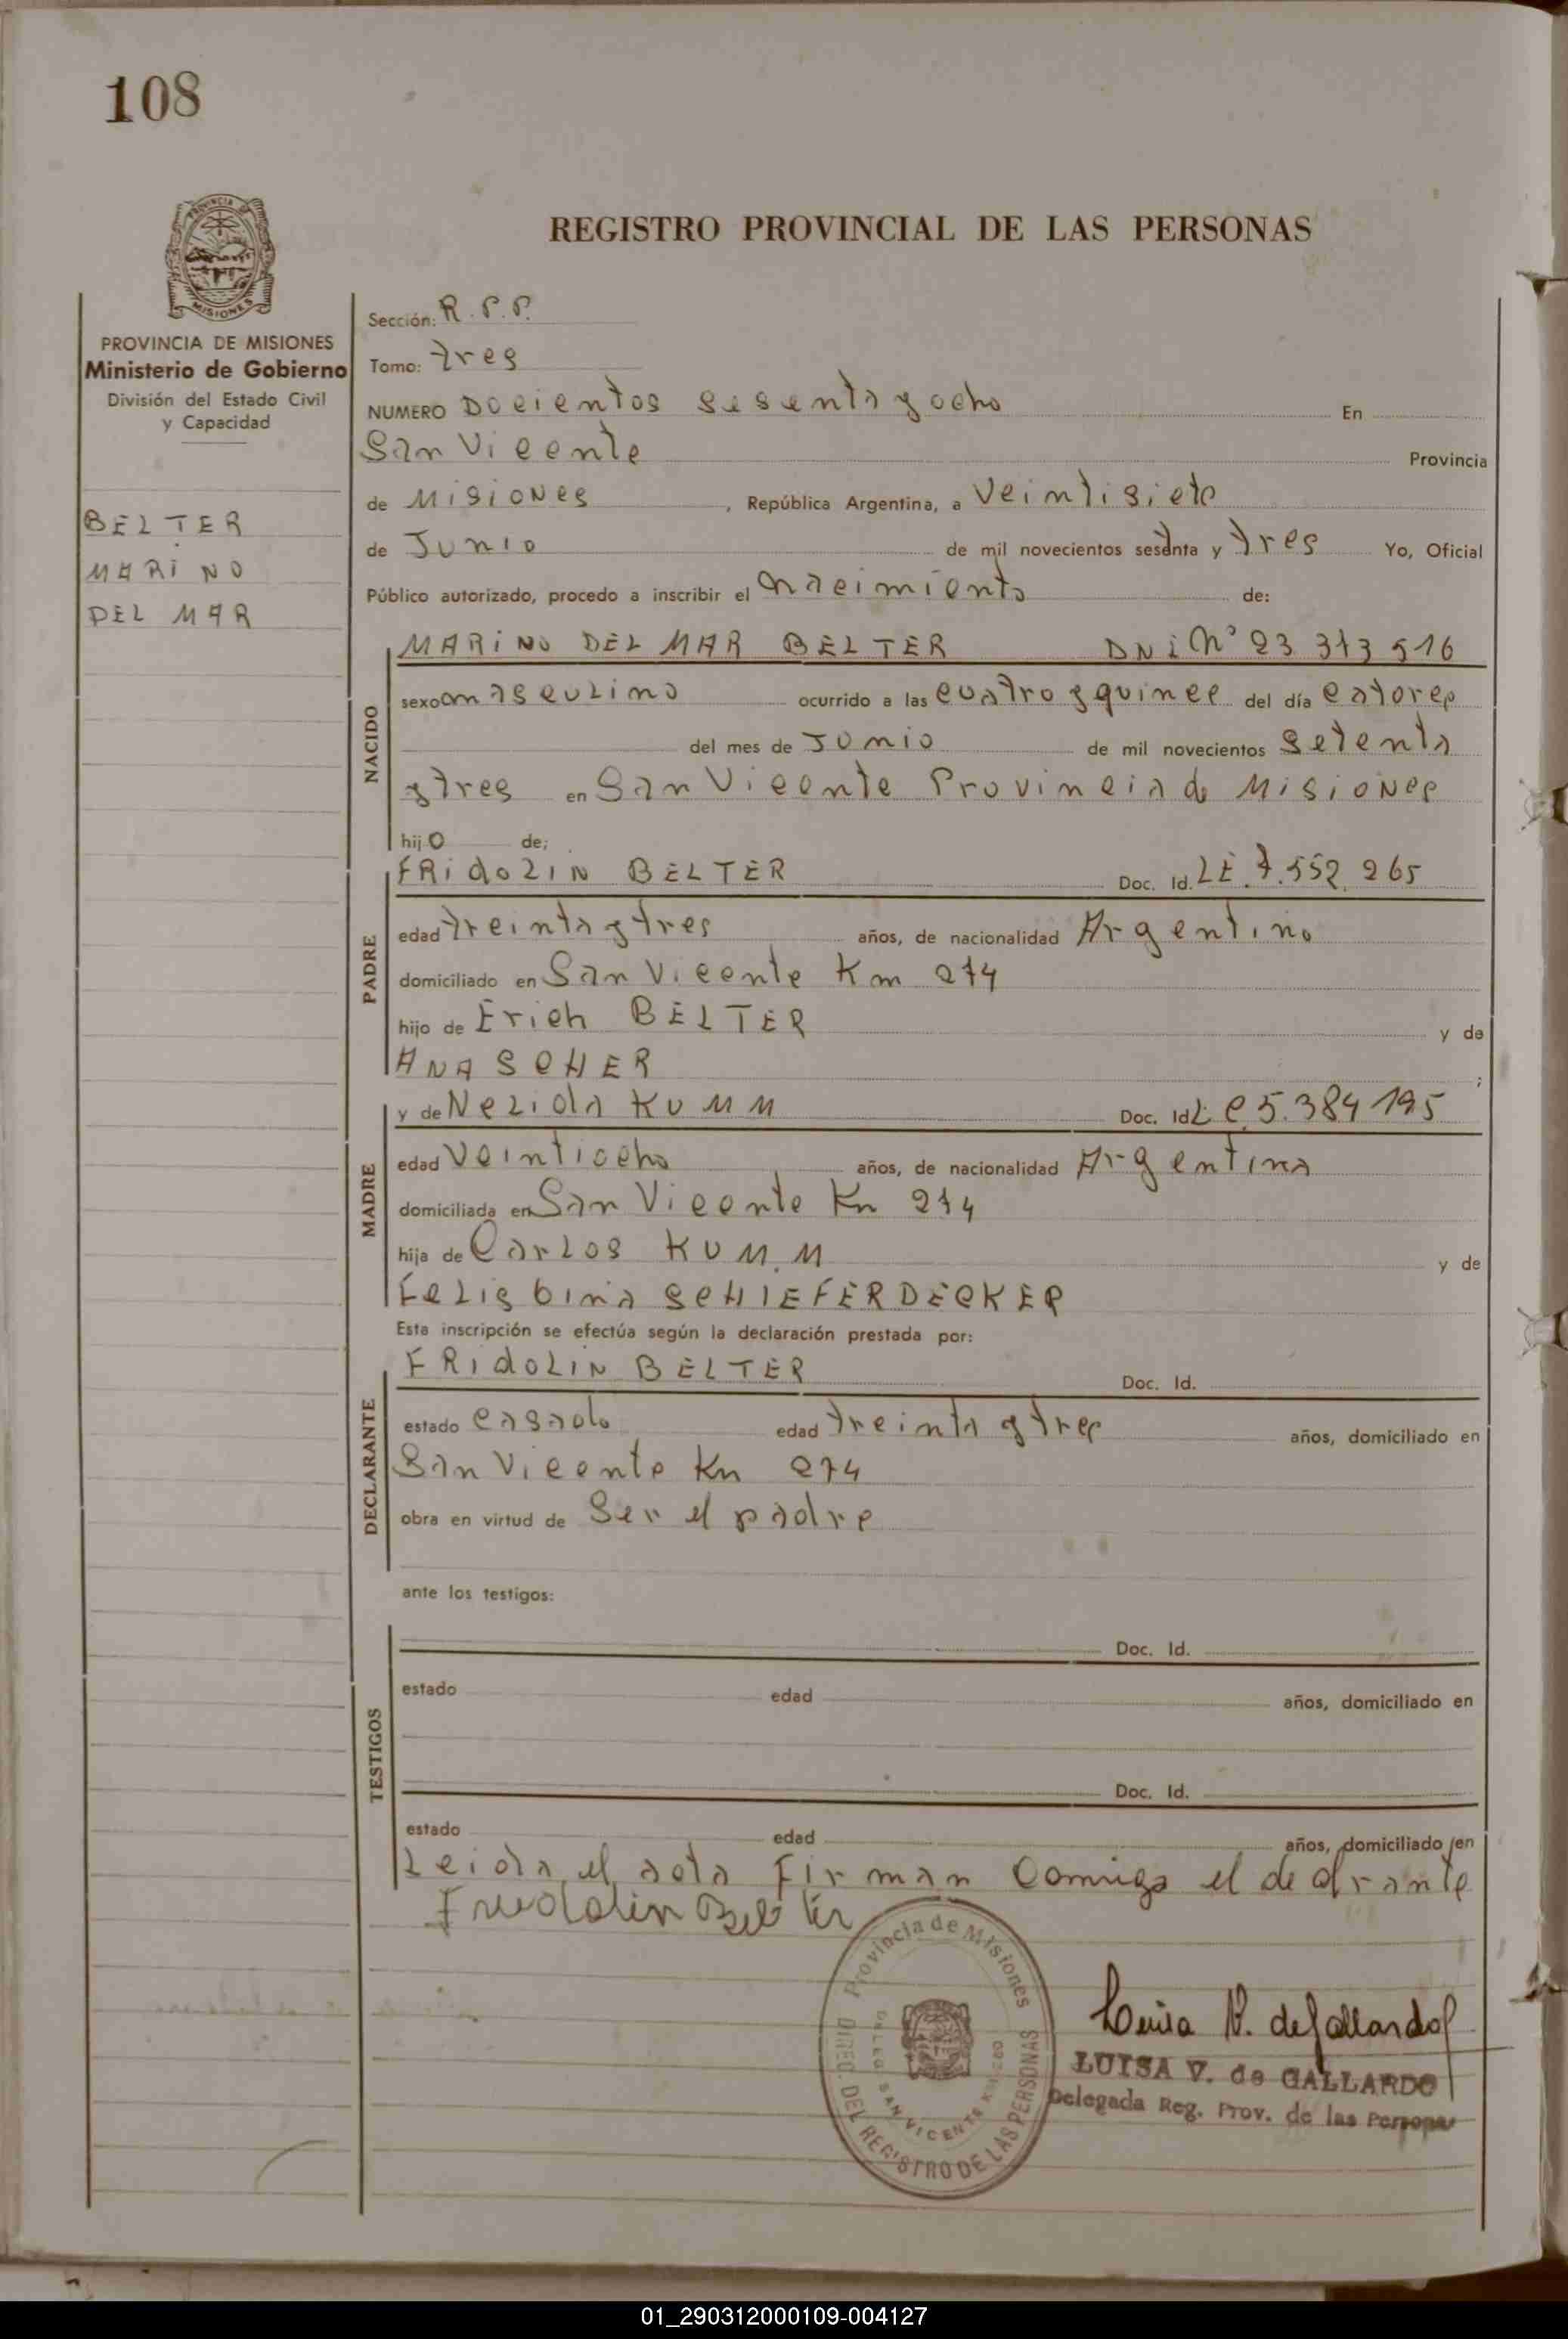 108
PROVINCIA DE MISIONES
Ministerio de Gobierno
División del Estado Civil
y Capacidad
BELTER
MARINO
DEL MAR
REGISTRO PROVINCIAL DE LAS PERSONAS
Sección: R.P.P.
Tomo: tres
NUMERO Docientos sesenta y ocho En
San Vicente Provincia
de Misiones, República Argentina, a veintisiete
de Junio de mil novecientos sesenta y tres Yo, Oficial
Público autorizado, procedo a inscribir el nacimiento de:
MARINO DEL MAR BELTER DNI Nº 23 313 516
NACIDO
sexo masculino ocurrido a las cuatro y quince del día catorce
del mes de Junio de mil novecientos setenta
y tres en San Vicente Provincia de Misiones
hijo de;
FRidoLIN BELTER Doc. Id. LE.7.552.265
PADRE
edad treinta y tres años, de nacionalidad Argentino
domiciliado en San Vicente Km 274
hijo de Erich BELTER y de
ANA SCHER ;
y de Nelida KUMM Doc. Id LC 5.384 195
MADRE
edad veintiocho años, de nacionalidad Argentina
domiciliada en San Vicente Km 274
hija de Carlos KUMM y de
Felisbina SCHIEFERDECKER
Esta inscripción se efectúa según la declaración prestada por:
FRidoLIN BELTER Doc. Id.
DECLARANTE
estado casado edad treinta y tres años, domiciliado en
San Vicente Km 274
obra en virtud de Ser el padre
ante los testigos:
Doc. Id.
TESTIGOS
estado edad años, domiciliado en
Doc. Id.
estado edad años, domiciliado en
Leida el acta Firman Conmigo el
Fridolin Belter
Provincia de Misiones
DIREC. DEL REGISTRO DE LAS PERSONAS
DELEG. SAN VICENTE
Luisa V. de Gallardo
LUISA V. de GALLARDO
Delegada Reg. Prov. de las Personas
01_290312000109-004127